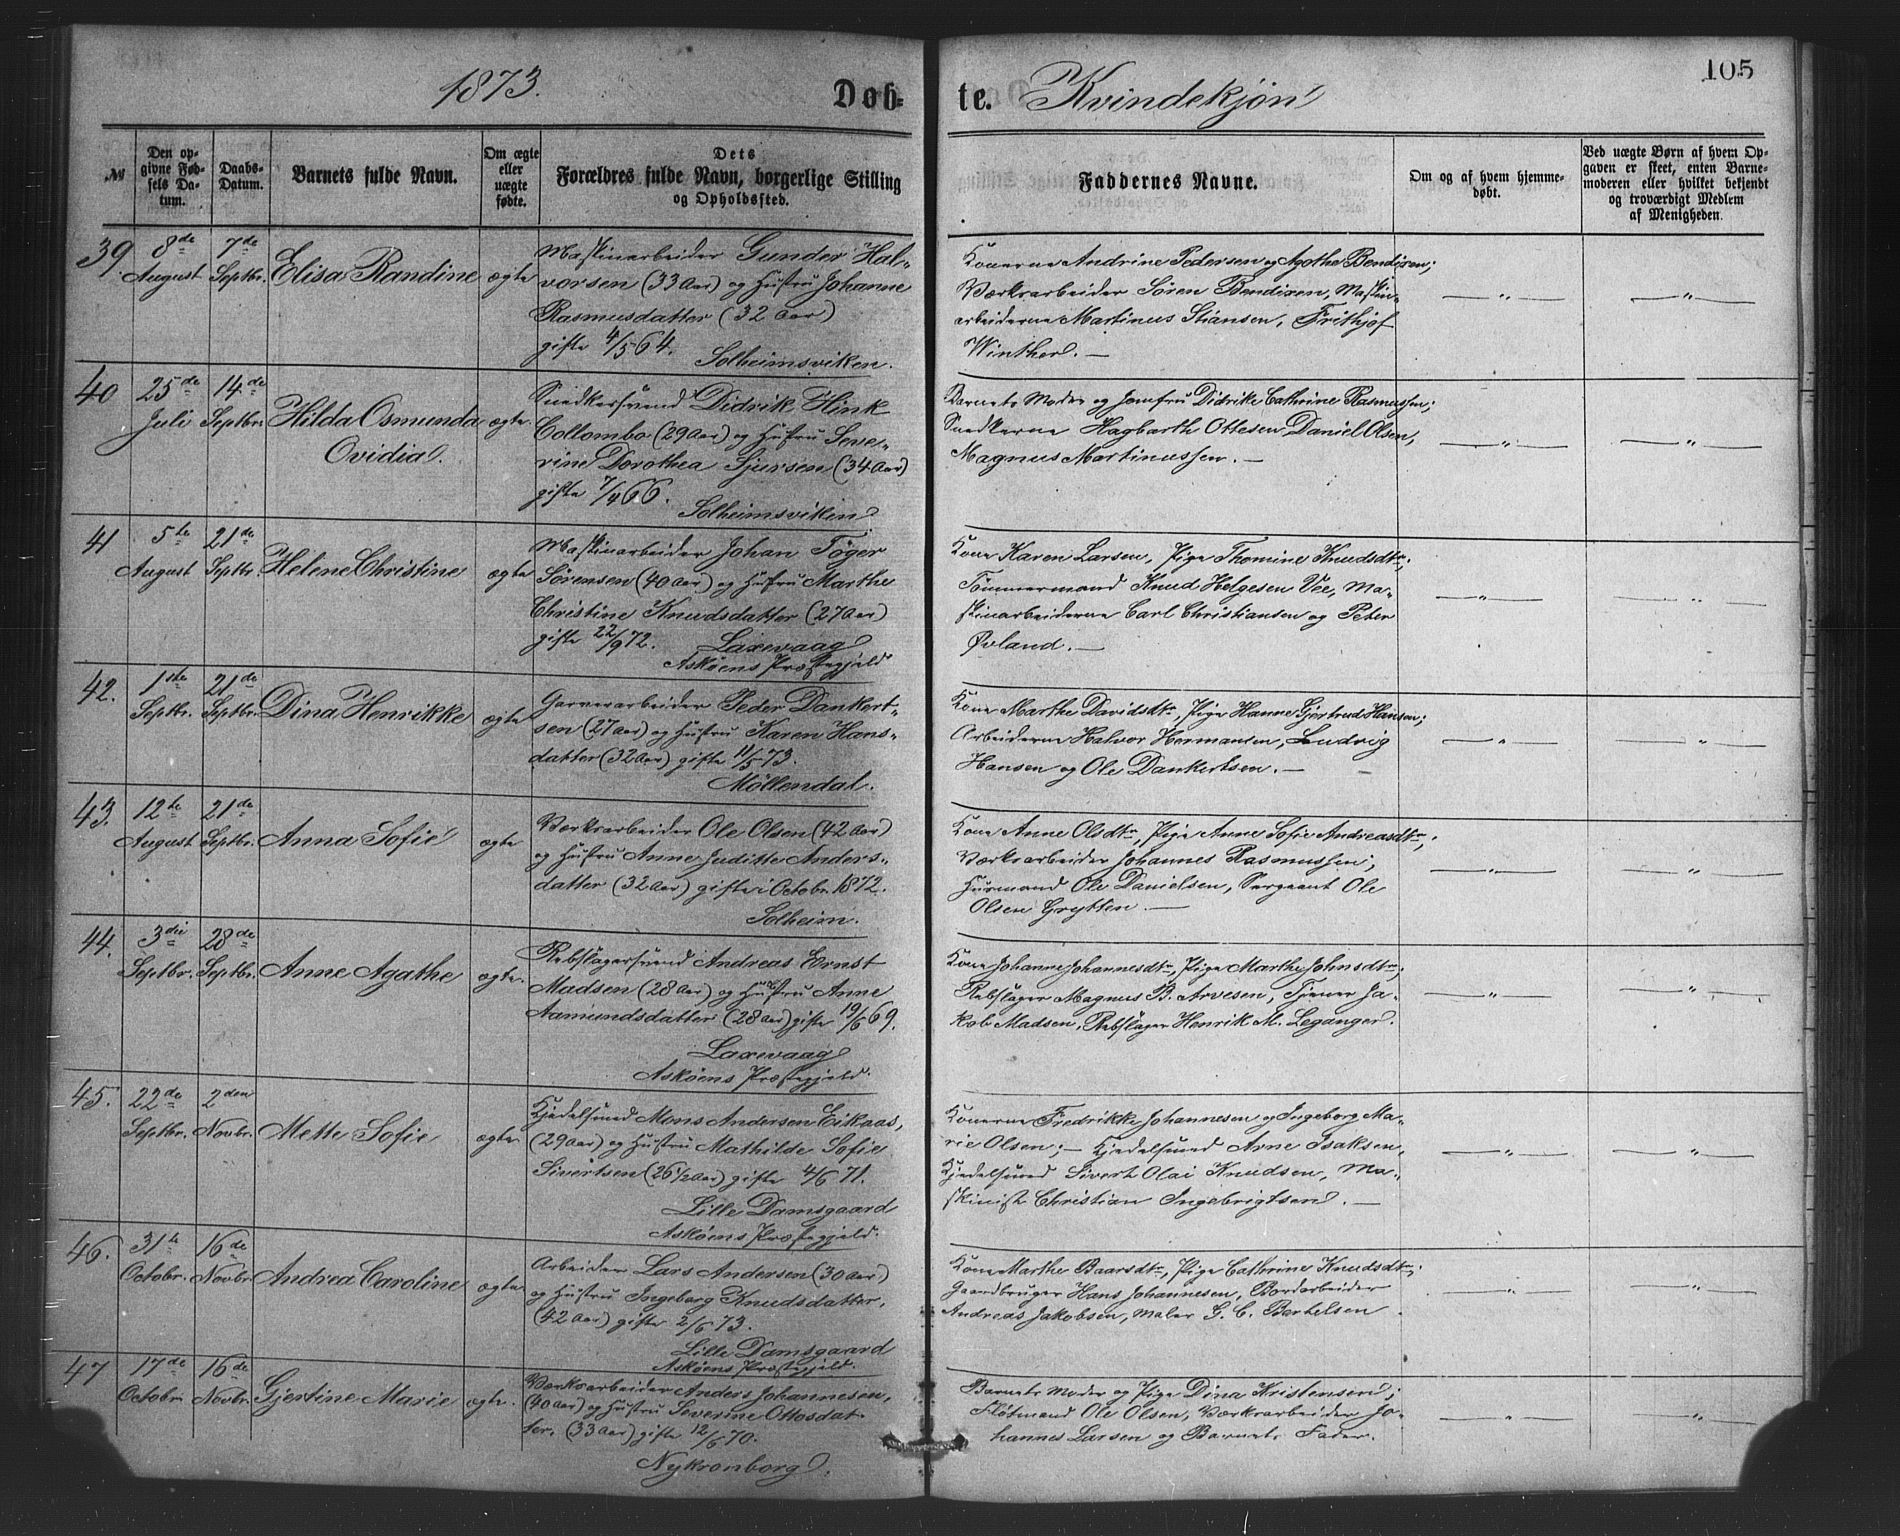 105
1873. Døb- te. Kvindekjøn
№
Den op-
givne Fød-
sels Da-
tum.
Daabs-
Datum.
Barnets fulde Navn.
Om ægte
eller
uægte
fødte.
Dets
Forældres fulde Navn, borgerlige Stilling
og Opholdssted.
Faddernes Navne.
Om og af hvem hjemme-
døbt.
Ved uægte Børn af hvem Op-
gaven er skeet, enten Barne-
moderen eller hvilket bekjendt
og troværdigt Medlem
af Menigheden.
39 8de August 7de Septbr. Elisa Randine ægte
Maskinarbeider Gunder Hal-
vorsen (33 Aar) og Hustru Johanne
Rasmusdatter (32 Aar)
gifte 4/5 64. Solheimsviken.
Konerne Andrine Pedersen og Agathe Bendixen;
Værksarbeider Sören Bendixen, Maskin-
arbeiderne Martinus Stiansen, Frithjof
Winther. —
— " —
— " —
40 25de Juli 14de Septbr. Hilda Osmunda
Ovidia. ægte.
Snedkersvend Didrik Hink
Collombo (29 Aar) og Hustru Seve-
rine Dorothea Sjursen (34 Aar)
gifte 7/4 66.
Solheimsviken
Barnets Moder og Jomfru Didrike Cathrine Rasmussen;
Snedkerne Hagbarth Ottesen, Daniel Olsen,
Magnus Martinussen. —
— " —
— " —
41 5te August 21de Septbr. Helene Christine ægte
Maskinarbeider Johan Töger
Sörensen (40 Aar) og Hustru Marthe
Christine Knudsdatter (27 Aar)
gifte 22/9 72. Laxevaag
Askøens Præstegjeld
Kone Karen Larsen, Pige Thomine Knudsdtr;
Tömmermand Knud Helgesen Vee, Ma-
skinarbeiderne Carl Christiansen og Peter
Øvland. —
— " —
— " —
42. 1ste Septbr. 21de Septbr. Dina Henrikke ægte
Garverarbeider Peder Dankert-
sen (27 Aar) og Hustru Karen Hans-
datter (32 Aar) gifte 11/5 73.
Möllendal.
Kone Marthe Davidsdtr, Pige Hanne Gjertrud Hansen;
Arbeiderne Halvor Hermansen, Ludvig
Hansen og Ole Dankertsen. —
— " —
— " —
43. 12te August 21de Septbr. Anna Sofie ægte
Værksarbeider Ole Olsen (42 Aar)
og Hustru Anne Juditte Anders-
datter (32 Aar) gifte i Octobr. 1872.
Solheim.
Kone Anne Olsdtr, Pige Anne Sofie Andreasdtr;
Værksarbeider Johannes Rasmussen;
Huusmand Ole Danielsen, Sergeant Ole
Olsen Grytten. —
— " —
— " —
44. 3die Septbr. 28de Septbr. Anne Agathe ægte.
Rebslagersvend Andreas Ernst
Madsen (28 Aar) og Hustru Anne
Aamundsdatter (28 Aar) gifte 19/6 69.
Laxevaag
Askøens Præstegjeld.
Kone Johanne Johannesdtr, Pige Marthe Johnsdtr;
Rebslager Magnus B. Arvesen, Tjener Ja-
kob Madsen, Rebslager Henrik M. Leganger.
— " —
— " —
45. 22de Septbr. 2den Novbr. Mette Sofie ægte
Kjedelsmed Mons Andersen Eikaas,
(29 Aar) og Hustru Mathilde Sofie
Sivertsen (26 1/2 Aar) gifte 4/6 71.
Lille Damsgaard
Askøens Præstegjeld.
Konerne Fredrikke Johannesen og Ingeborg Ma-
rie Olsen; — Kjedelsmed Arne Isaksen,
Kjedelsmed Sivert Olai Knudsen, Ma-
skinist Christian Ingebrigtsen. —
— " —
— " —
46. 31te Octobr. 16de Novbr. Andrea Caroline ægte
Arbeider Lars Andersen (30 Aar)
og Hustru Ingeborg Knudsdatter,
(42 Aar) gifte 2/6 73.
Lille Damsgaard
Askøens Præstegjeld.
Kone Marthe Baarsdtr, Pige Cathrine Knudsdtr;
Gaardbruger Hans Johannesen, Bordarbeider
Andreas Jakobsen, Maler G. C. Bertelsen.
— " —
— " —
47 17de Octobr. 16de Novbr. Gjertine Marie ægte.
Værksarbeider Anders Johannesen,
(40 Aar) og Hustru Severine Ottosdat-
ter, (33 Aar) gifte 12/6 70.
Nykronborg.
Barnets Moder og Pige Dina Kristensen;
Flötmand Ole Olsen, Værksarbeider Jo-
hannes Larsen og Barnets Fader.
— " —
— " —